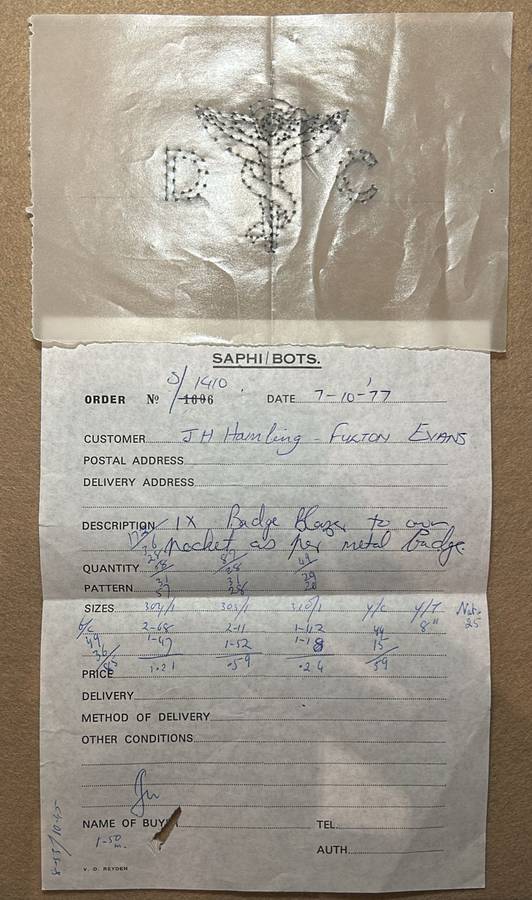 D C
SAPHI/BOTS.
ORDER Nº S/1410 1096 DATE 7-10-'77
CUSTOMER J H Hamling - FULTON EVANS
POSTAL ADDRESS
DELIVERY ADDRESS
DESCRIPTION 1X Badge Blazer to own
pocket as per metal badge.
QUANTITY
PATTERN
SIZES 304/1 305/1 310/1 Y/C Y/T
2-68 2-11 1-42 8"
1-47 1-52 1-18 15 25
PRICE 1.21 .59 .24 59
DELIVERY
METHOD OF DELIVERY
OTHER CONDITIONS
NAME OF BUYER TEL.
1-50 m.
AUTH.
V. D. REYDEN